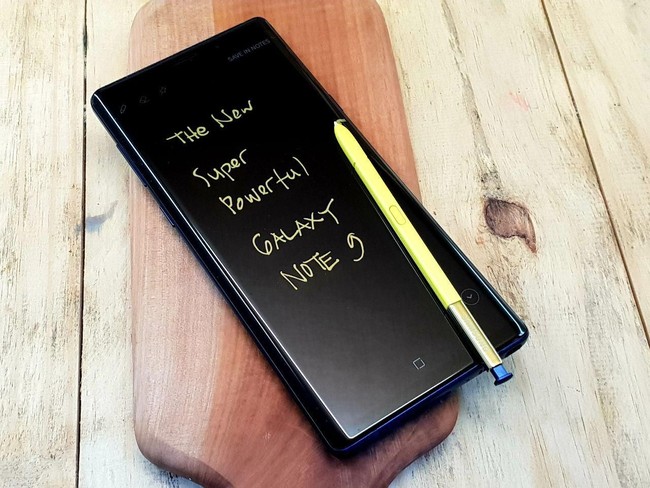 SAVE IN NOTES
THe New
Super
Powerful
GALAXY
NOTE 9